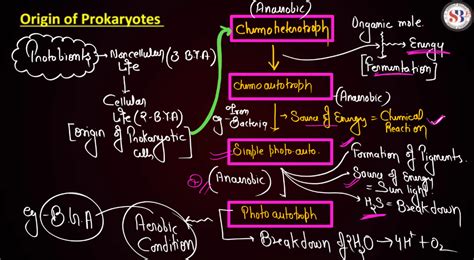 Origin of Prokaryotes
SB
(Anaerobic)
Chemoheterotroph
Organic mole.
Energy
[Fermentation]
Protobionts
Noncellular (3 BYA)
Life
Cellular
Life (2-BYA)
[Origin of Prokaryotic
Cells]
Chemoautotroph
(Anaerobic)
eg- Iron
Bacteria
Source of Energy = Chemical
Reaction
Simple photo auto.
(Anaerobic)
Formation of Pigments.
Source of Energy
= Sun light
H2S = Breakdown
Photoautotroph
eg- B.G.A
Aerobic
Condition
Breakdown of H2O → 4H+ + O2